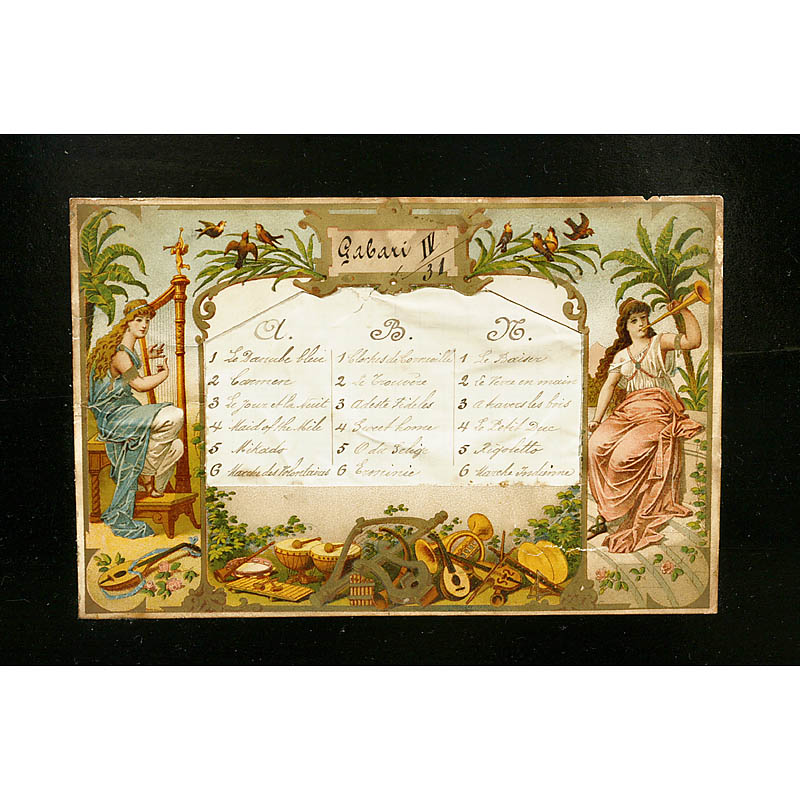 Gabari IV
31
A. B. N.
1 Le Danube bleu 1 Cloches de Corneville 1 Le Baiser
2 Carmen 2 Le Trouvère 2 Le Verre en main
3 Le jour et la Nuit 3 Adeste Fideles 3 a travers les bois
4 Maid of the Mile 4 Sweet home 4 Le Petit Duc
5 Mikado 5 O du Selige 5 Rigoletto
6 Marche des Volontaires 6 Erminie 6 Marche Indienne